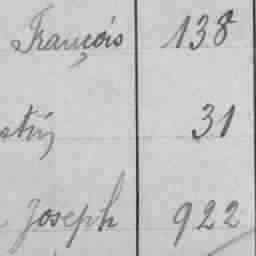 François 138
stin 31
Joseph 922